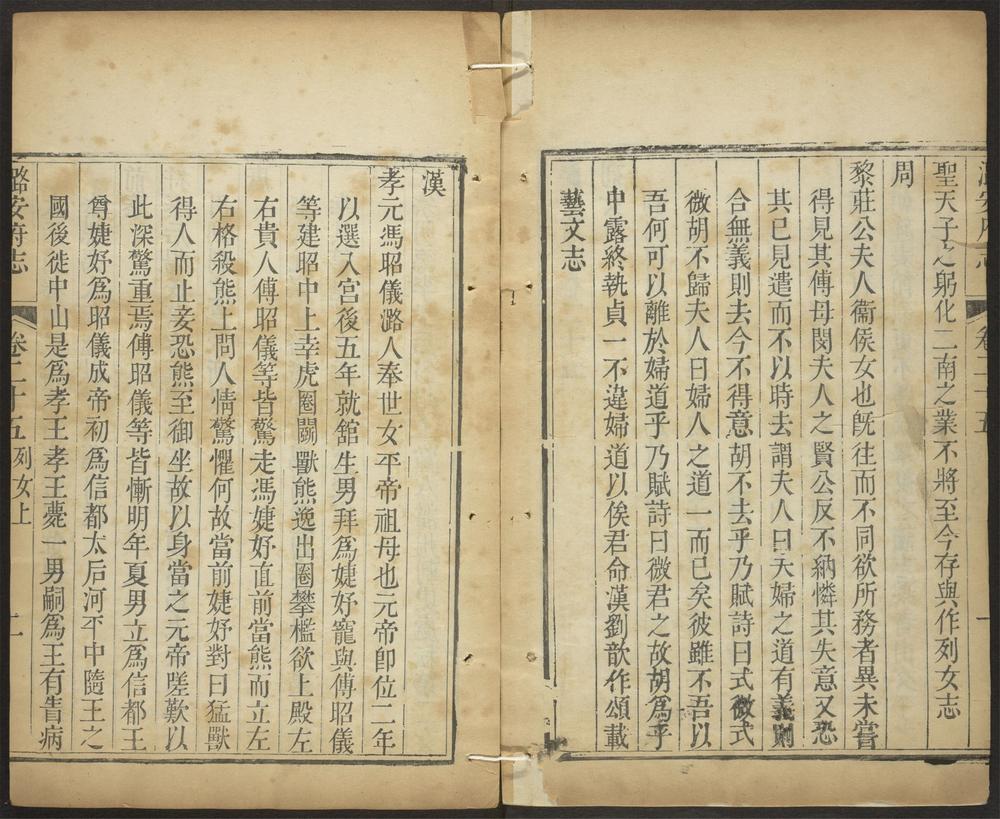 潞安府志 卷二十五 一
聖天子之躬化二南之業不將至今存與作列女志
周
黎莊公夫人衞侯女也旣往而不同欲所務者異未嘗
得見其傅母閔夫人之賢公反不納憐其失意又恐
其已見遣而不以時去謂夫人曰夫婦之道有義則
合無義則去今不得意胡不去乎乃賦詩曰式微式
微胡不歸夫人曰婦人之道一而已矣彼雖不吾以
吾何可以離於婦道乎乃賦詩曰微君之故胡爲乎
中露終執貞一不違婦道以俟君命漢劉歆作頌載
藝文志
漢
孝元馮昭儀潞人奉世女平帝祖母也元帝卽位二年
以選入宮後五年就舘生男拜爲婕妤寵與傅昭儀
等建昭中上幸虎圈鬭獸熊逸出圈攀檻欲上殿左
右貴人傅昭儀等皆驚走馮婕妤直前當熊而立左
右格殺熊上問人情驚懼何故當前婕妤對曰猛獸
得人而止妾恐熊至御坐故以身當之元帝嗟歎以
此深驚重焉傅昭儀等皆慚明年夏男立爲信都王
尊婕妤爲昭儀成帝初爲信都太后河平中隨王之
國後徙中山是爲孝王孝王薨一男嗣爲王有眚病
潞安府志 卷二十五 列女上 二